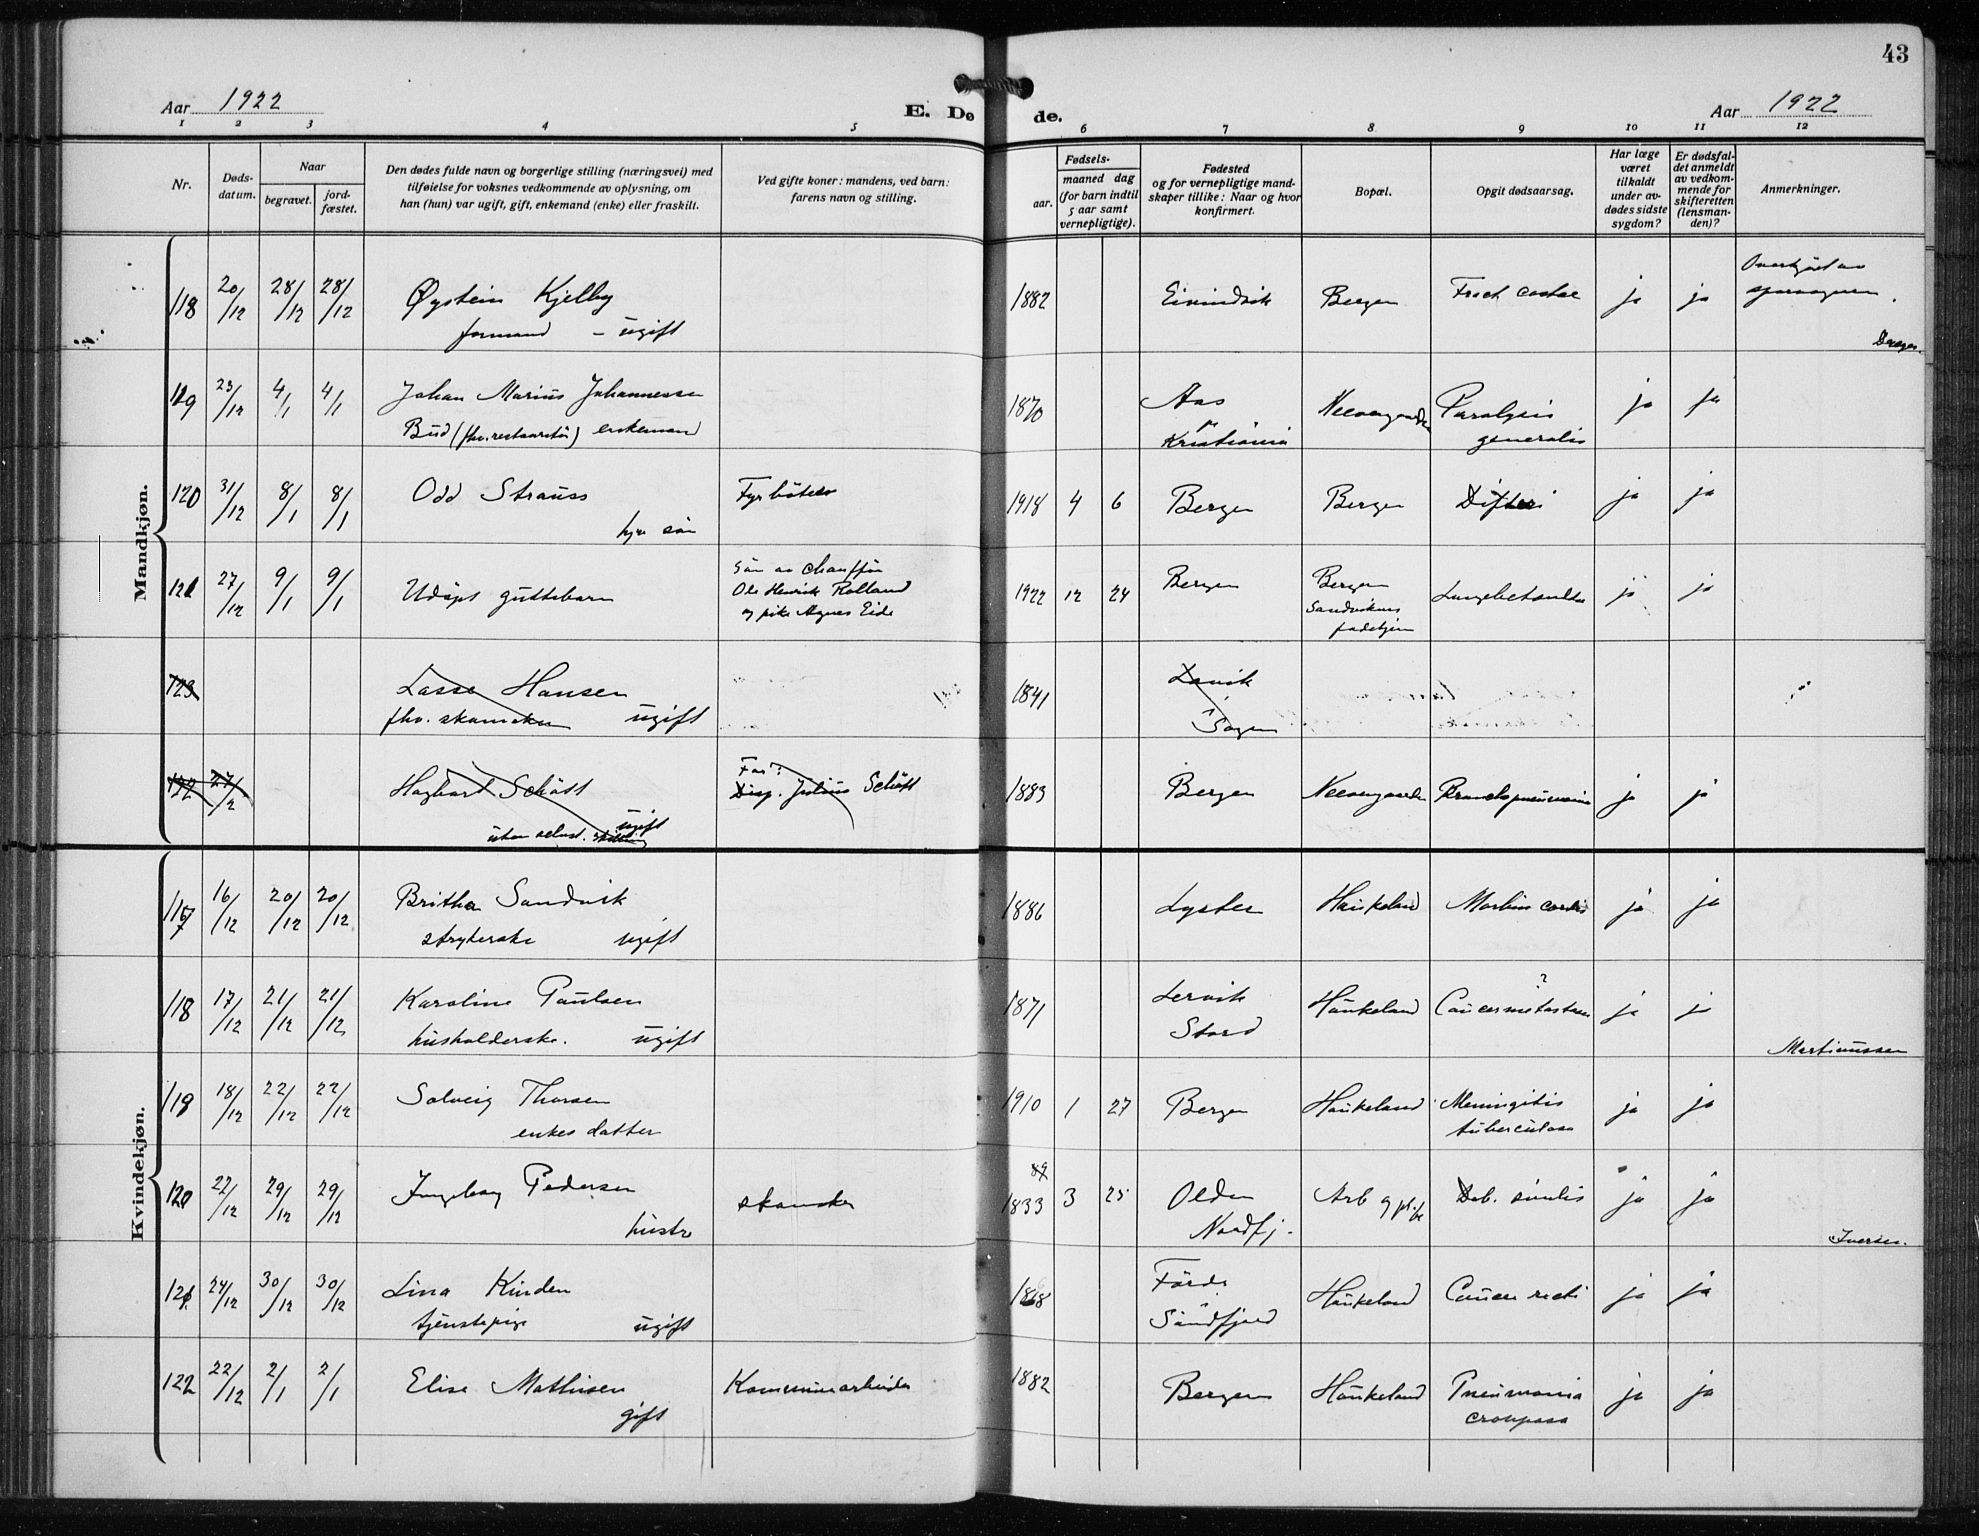 43
Aar 1922
E. Dø de.
Aar 1922
1 2 3 4 5 6 7 8 9 10 11 12
Nr.
Døds-
datum.
Naar
begravet.
jord-
fæstet.
Den dødes fulde navn og borgerlige stilling (næringsvei) med
tilføielse for voksnes vedkommende av oplysning, om
han (hun) var ugift, gift, enkemand (enke) eller fraskilt.
Ved gifte koner: mandens, ved barn:
farens navn og stilling.
Fødsels-
aar.
maaned dag
(for barn indtil
5 aar samt
vernepligtige).
Fødested
og for vernepligtige mand-
skaper tillike: Naar og hvor
konfirmert.
Bopæl.
Opgit dødsaarsag.
Har læge
været
tilkaldt
under av-
dødes sidste
sygdom?
Er dødsfal-
det anmeldt
av vedkom-
mende for
skifteretten
(lensman-
den)?
Anmerkninger.
Mandkjøn.
118 20/12 28/12 28/12 Øystein Kjelby 1882 Eivindvik Bergen Fract. costae ja ja
formand - ugift
119 23/12 4/1 4/1 Johan Marius Johannessen 1870 Aas Neevengaarden Paralysis ja ja
Bud (fhv. restauratør) enkemand Kristiania generalis
120 31/12 8/1 8/1 Odd Strauss Fyrbøter 1918 4 6 Bergen Bergen Difteri ja ja
søn
121 27/12 9/1 9/1 Udøpt guttebarn Søn av chauffør 1922 12 24 Bergen Bergen ja ja
Ole Henrik Rolland Sandvikens
og pike Agnes Eide
123 Lasse Hansen 1841 Lavik
fhv. skomaker ugift i Sogn
122 27/12 Hagbart Schøtt Far: 1883 Bergen Neevengaarden Bronchopneumonia ja ja
Disp. Julius Schøtt
ugift
uten selvst. stilling
Kvindekjøn.
117 16/12 20/12 20/12 Britha Sandvik 1886 Lyster Haukeland Morbus cordis ja ja
strykerske ugift
118 17/12 21/12 21/12 Karoline Paulsen 1871 Lervik Haukeland Cancermetastaser ? ja ja
husholderske. ugift Stord
Martinussen
119 18/12 22/12 22/12 Solveig Thorsen 1910 1 27 Bergen Haukeland Meningitis ja ja
enkes datter tuberculosa
120 22/12 29/12 29/12 Ingeborg Pedersen skomaker 89 1833 3 25 Olden Arb og pl. Deb. senilis ja ja
hustr Nordfj.
Iversen.
121 24/12 30/12 30/12 Lina Kinden 1868 Førde Haukeland Cancer recti ja ja
tjenstepige ugift i Søndfjord
122 22/12 2/1 2/1 Elise Mathisen Kommunearbeider 1882 Bergen Haukeland Pneumonia ja ja
gift crouposa